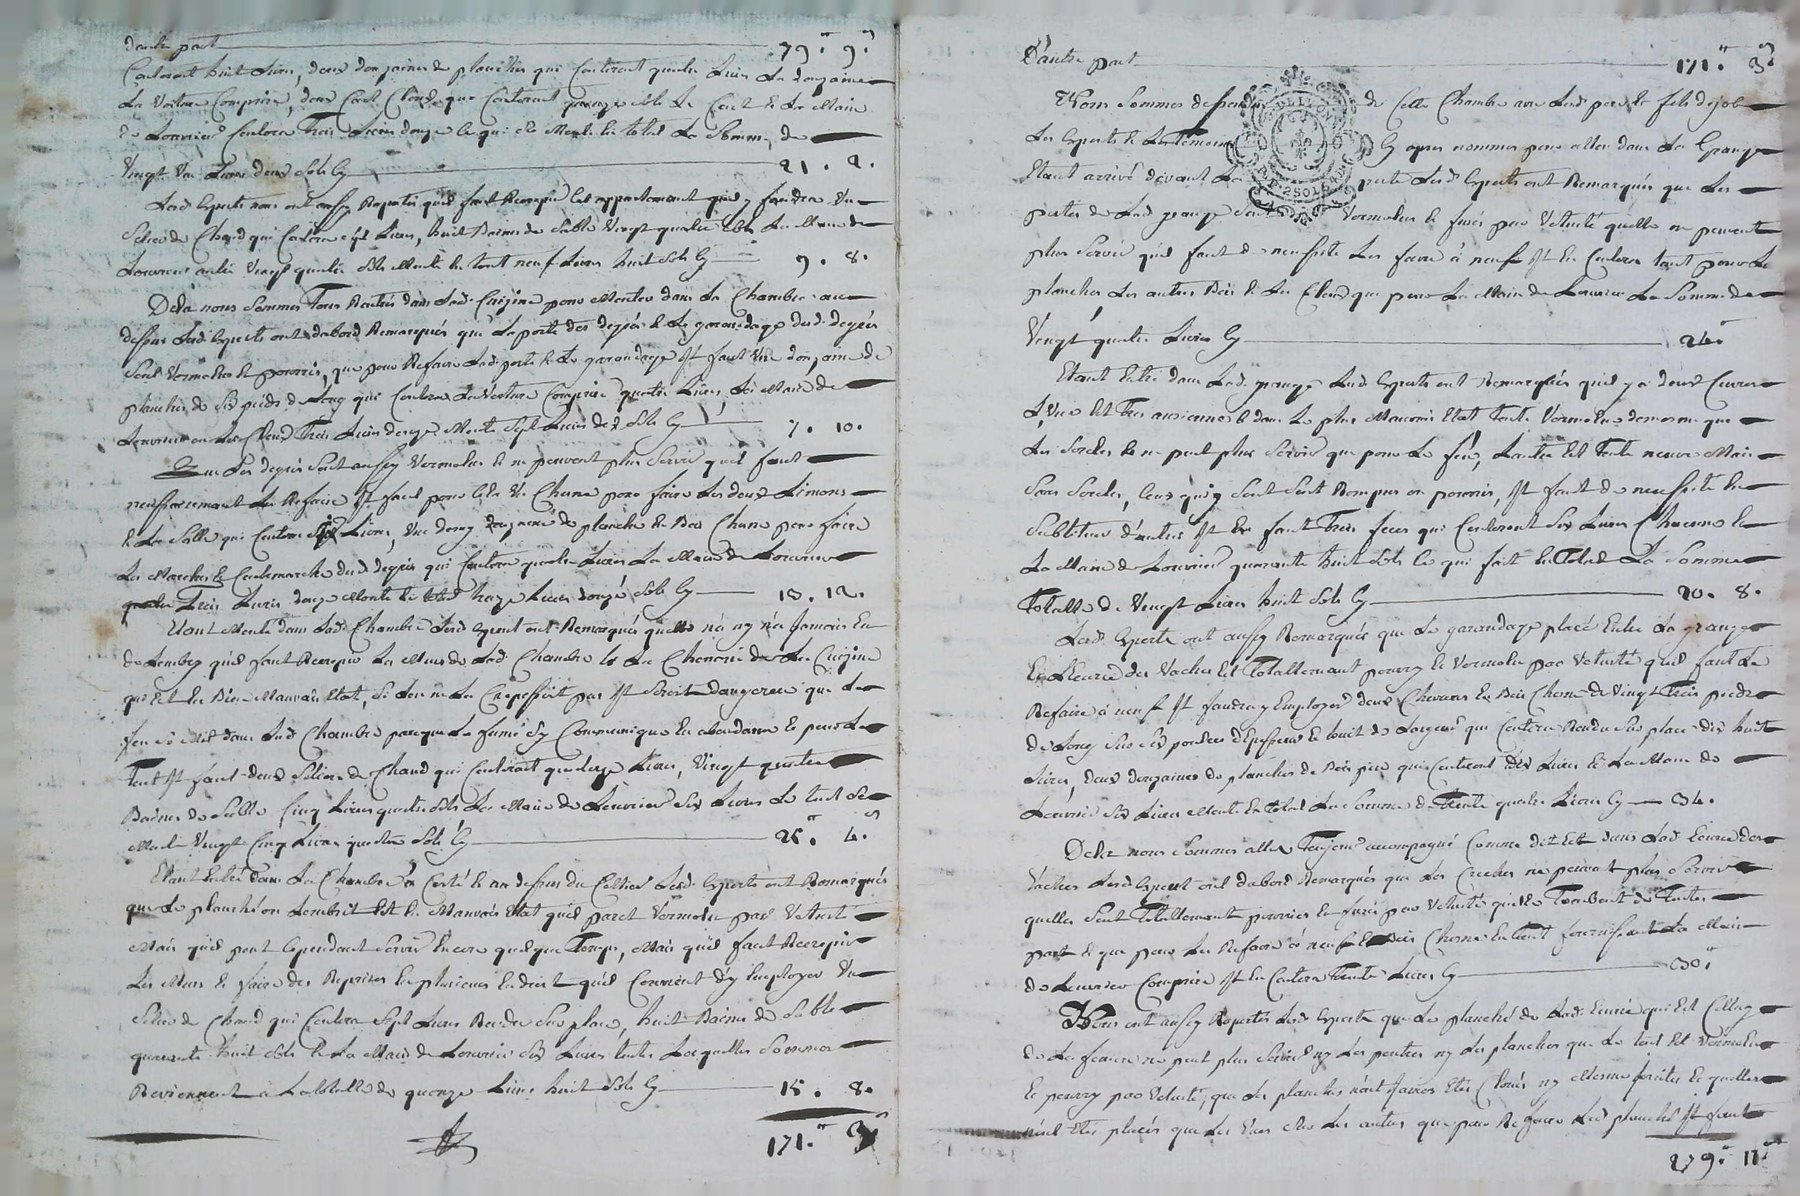 D'autre part 79.# 9.s
Couteront huit Livres, deux douzaines de planches qui Couteront quatre Livres La douzaine
La Voiture Comprise, deux Cent Clouds que Couteront quinze sols Le Cent et La Main
de Louvrier Coutera Trois Livres douze ce qui Monte en total La Somme de
Vingt Une Livres deux sols Cy 21. 2.
Lesd. Experts nous ont aussy Raportés qu'il faut Recrepir les appartement qu'il y faudra Un
Setier de Chaud qui Coutera sept Livres, huit Baines de Sable Vingt quatre sols La Main de
Louvrier Vingt quatre sols Monte en tout neuf Livres huit sols Cy 9. 8.
De la nous Sommes Tous Rentrés dans Lad. Cuizine pour Monter dans La Chambre au
dessus Lesd. Experts ont dabord Remarqués que La porte des degrés et Le garandage desd. degrés
sont Vermolus et pourris, que pour Refaire Lad. porte et Le garandage Il faut Une douzaine de
planches de Six pieds de Long qui Coutera La Voiture Comprise quatre Livres, La Main de
Louvrier ou Les Clouds Trois Livres dix Monte Sept Livres dix Sols Cy 7. 10.
Que Les degrés sont aussy Vermolus et ne peuvent plus Servir qu'il faut
nessessairement Les Refaire Il faut pour cela Un Chene pour faire Les deux Limons
et La Salle qui Coutera Six Livres, Une demy douzaine de planche en Bois Chene pour faire
Les Marches et Contremarche desd. degrés qui Coutera quatre Livres La Main de Louvrier
Trois Livres douze Monte le total Treize Livres douze Sols Cy 13. 12.
Etant Monté dans Lad. Chambre Lesd. Expert ont Remarqués quelle n'a ny n'a Jamais Eu
de Lembry qu'il faut Recrepir La Mur de Lad. Chambre et La Cheminée de La Cuizine
qui Est en Bien Mauvais Etat, Si Lon ne La Crepissoit pas Il Seroit dangereux que Le
feu se Mit dans Lad. Chambre parceque La fumé s'y Communique En abondance et pour Le
Tout Il faut deux Setiers de Chaud qui Couteront quatorze Livres, Vingt quatre
Baines de Sable Cinq Livres quatre sols La Main de Louvrier Six Livres Le tout Se
Monte Vingt Cinq Livres quatre Sols Cy 25.# 4.s
Etant Entré dans La Chambre a Coté et au dessus du Cellier Lesd. Experts ont Remarqués
que Le planché ou Lembris Est En Mauvais Etat qu'il paroit Vermolu par Vetusté
Mais qu'il peut Cependant Servir Encore quelque Temps, Mais qu'il faut Recrepir
Les Murs et faire des Reprises En plusieurs Endroit qu'il Convient d'y Employer Un
Setier de Chaud qui Coutera Sept Livres Rendu Sur place, huit Baines de Sable
quarante huit sols et La Main de Louvrier Six Livres toutes Lesquelles Sommes
Reviennent a La totalle de quinze Livres huit Sols Cy 15. 8.
171.# 3.s
D'autre part 171.# 3.s
Nous Sommes de Cette Chambre
Les Experts et Les Temoins Cy apres nommés pour aller dans La Grange
Etant arrivé devant La porte Lesd. Experts ont Remarqués que Les
portes de Lad. grange Sont Vermolues et par Vetusté quelle ne peuvent
plus Servir qu'il faut de nessesité Les faire à neuf Il En Coutera tant pour Le
planches Les autres Bois et Les Clouds que pour La Main de Louvrier La Somme de
Vingt quatre Livres Cy 24.#
Etant Entré dans Lad. grange Lesd. Experts ont Remarqués qu'il y a deux Cuves
L'une Est Tres ancienne et dans Le plus Mauvais Etat toute Vermolue de meme que
Les Sercles et ne peut plus Servir que pour Le feu, Lautre Est Toute neuve Mais
Sans Sercles, Ceux qui y Sont Sont Rompus ou pourris, Il faut de nessesité En
Substituer d'autres Il En faut Trois feces qui Couteront Six Livres Chacune et
La Main de Louvrier quarante huit sols Ce qui fait En Total La Somme
Totalle de Vingt Livres huit Sols Cy 20. 8.
Lesd. Experts ont aussy Remarqués que Le garandage placé Entre La grange
Et L'Ecurie des Vaches Est Totallement pourry et Vermolu par Vetusté qu'il faut Le
Refaire à neuf Il faudra y Employer deux Chevrons En Bois Chene de Vingt Trois pieds
de Long Sur Six pouces d'Epesseur et huit de Largeur qui Coutera Rendu Sur place dix huit
Livres, deux douzaines de planches de Bois qui Couteront dix Livres et La Main de
Louvrier Six Livres Monte En total La Somme de Trente quatre Livres Cy 34.
De la nous Sommes allés Toujours accompagné Comme dit Est dans Lad. Ecurie des
Vaches Lesd. Expert ont dabord Remarqués que Les Creches ne peuvent plus Servir
quelles Sont Totallement pourries Et par Vetusté qu'elles Tombent de Toutes
part et que pour Les Refaire à neuf En Bois Chene En tout fournissant La Main
de Louvrier Comprise Il En Coutera Trente Livres Cy 30.#
Nous ont aussy Raportés Lesd. Experts que Le planché de Lad. Ecurie qui Est Celluy
de La feniere ne peut plus Servir ny Les poutres ny Les planches que Le tout Est Vermolu
et pourry par Vetusté, que Les planches n'ont Jamais Etés Cloués ny Meme et quelles
n'ont Etés placés que Les Unes Sur Les autres que pour Refaire Led. planché Il faut
279.# 11.s